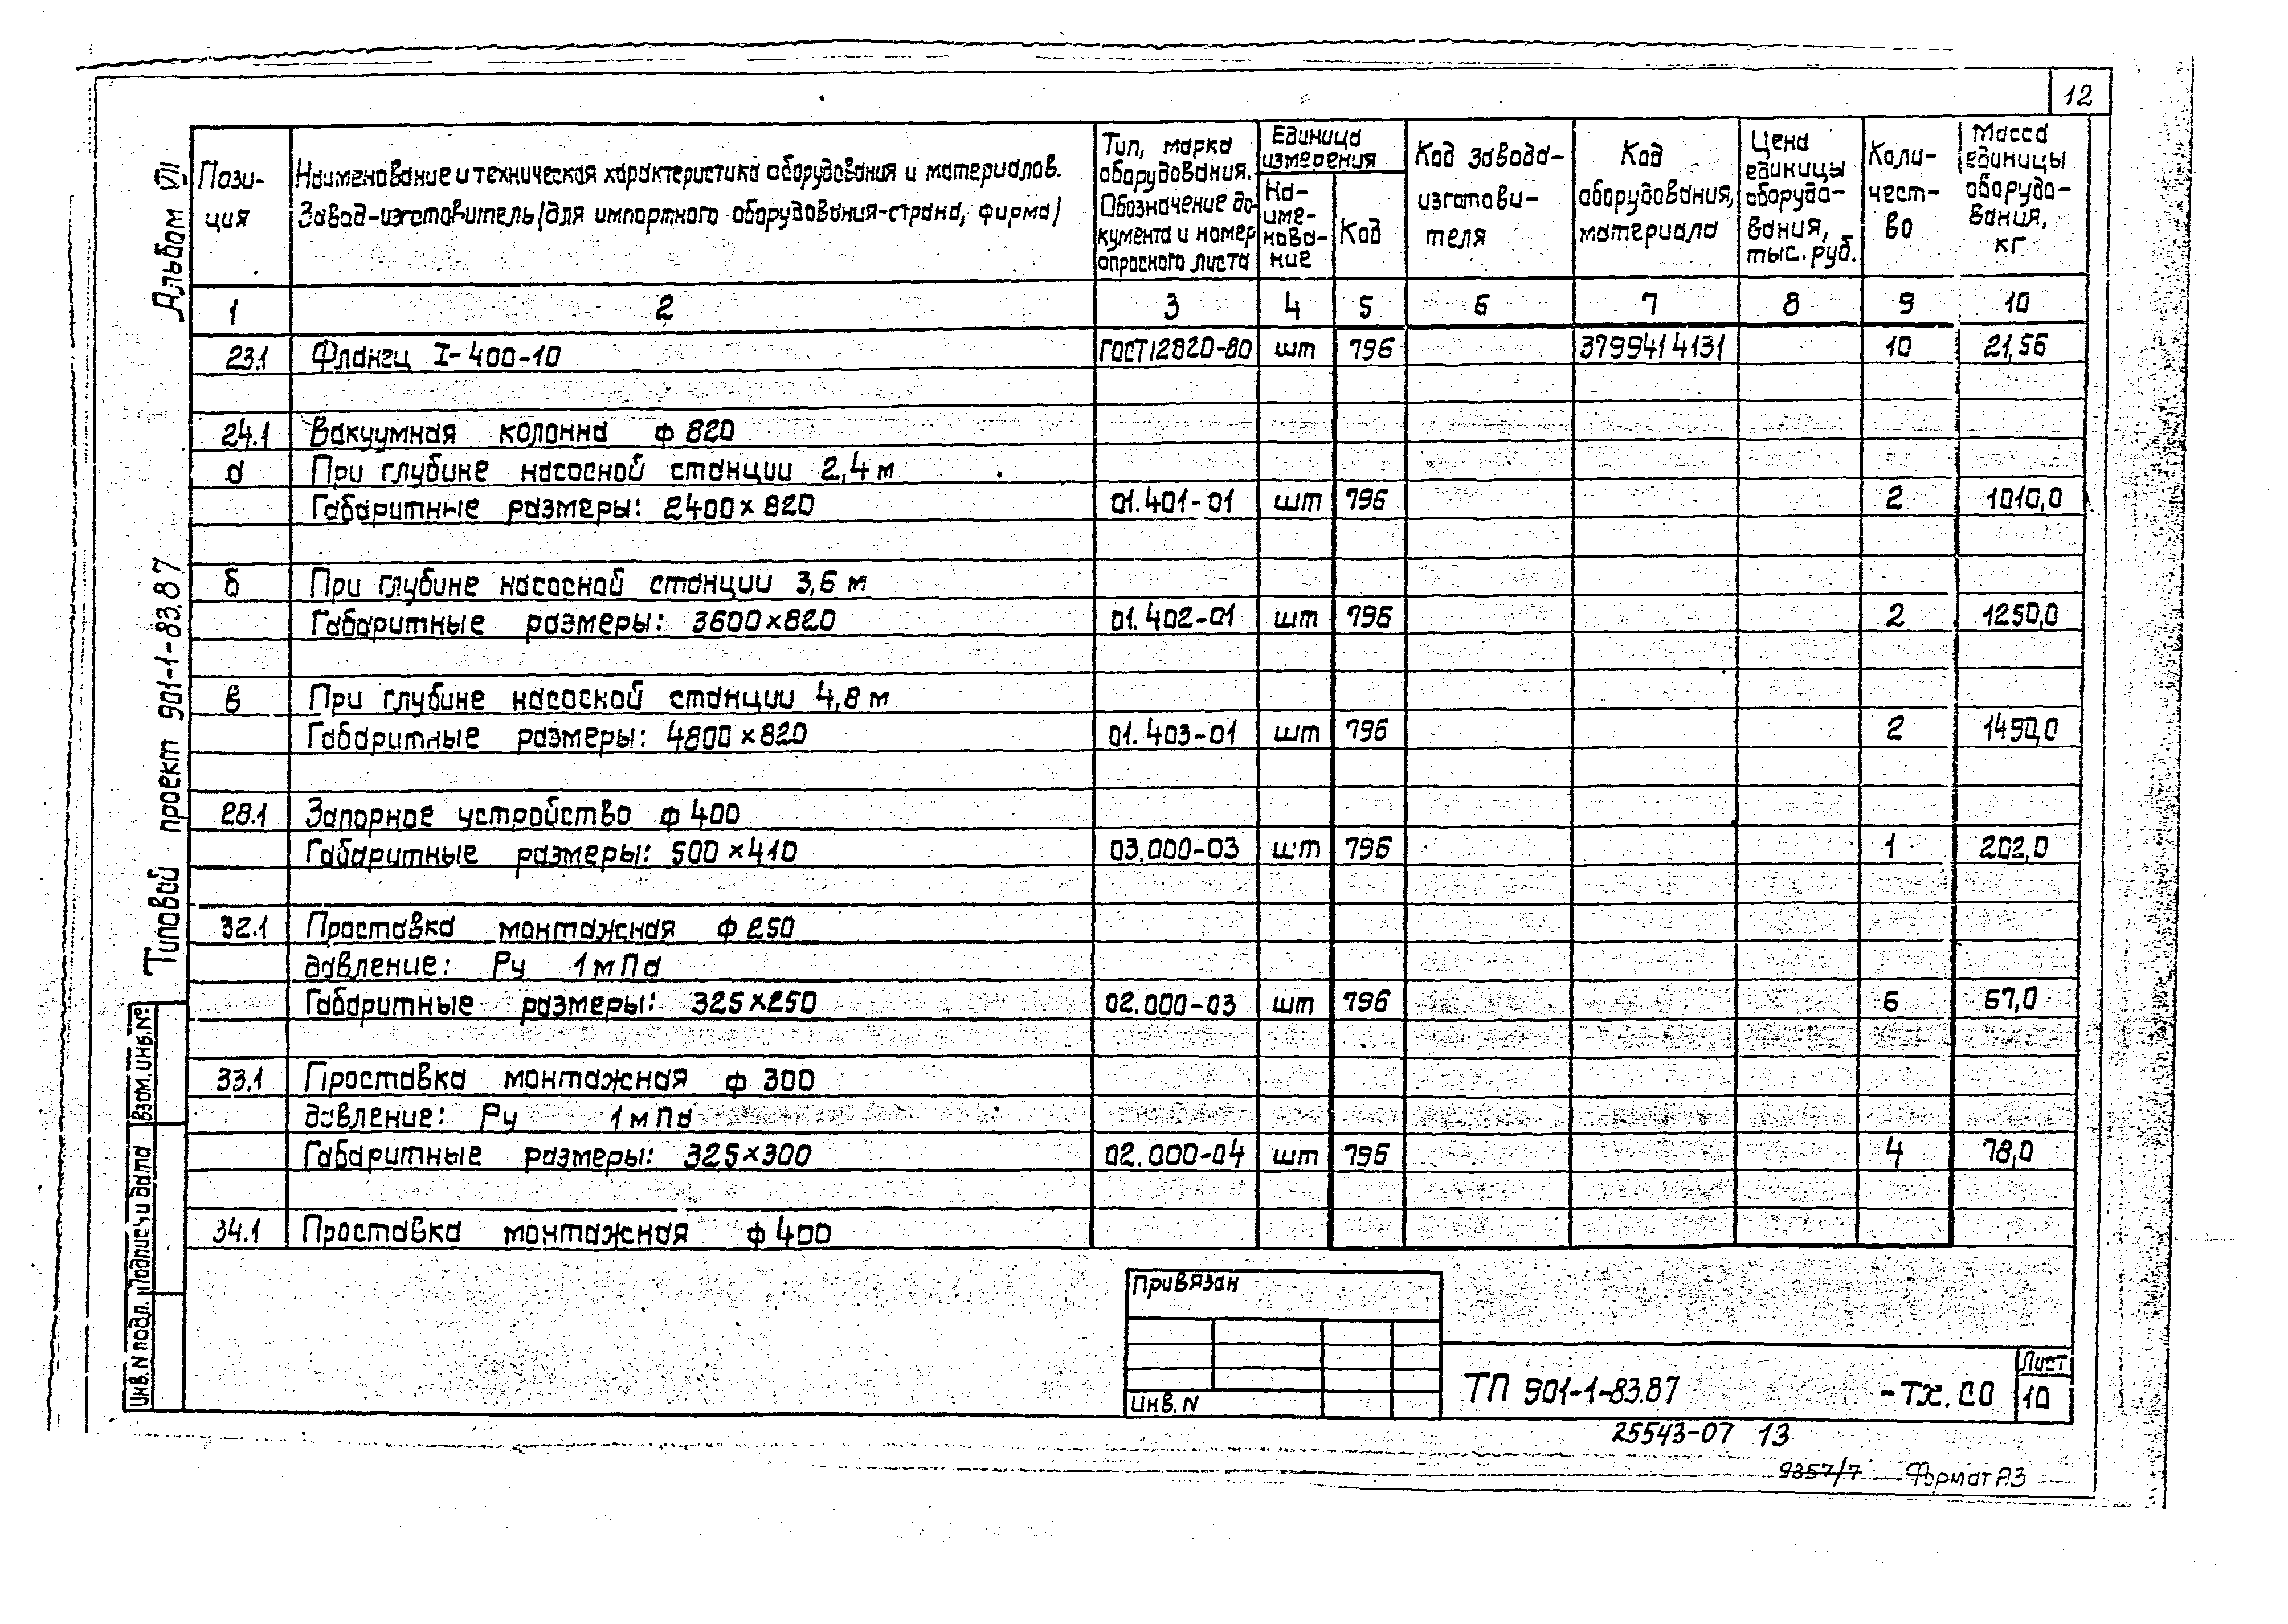 12
Альбом VII
Типовой проект 901-1-83.87
Пози-
ция
Наименование и техническая характеристика оборудования и материалов.
Завод-изготовитель (для импортного оборудования-страна, фирма)
Тип, марка
оборудования.
Обозначение до-
кумента и номер
опросного листа
Единица
измерения
На-
име-
нова-
ние
Код
Код завода-
изготови-
теля
Код
оборудования,
материала
Цена
единицы
оборудо-
вания,
тыс. руб.
Коли-
чест-
во
Масса
единицы
оборудо-
вания,
кг
1 2 3 4 5 6 7 8 9 10
23.1 Фланец I-400-10 ГОСТ 12820-80 шт 796 3799414131 10 21,56
24.1 Вакуумная колонна ф 820
а При глубине насосной станции 2,4 м
Габаритные размеры: 2400 х 820 01.401-01 шт 796 2 1010,0
б При глубине насосной станции 3,6 м
Габаритные размеры: 3600х820 01.402-01 шт 796 2 1250,0
в При глубине насосной станции 4,8 м
Габаритные размеры: 4800 х 820 01.403-01 шт 796 2 1490,0
28.1 Запорное устройство ф 400
Габаритные размеры: 500 х 410 03.000-03 шт 796 1 202,0
32.1 Проставка монтажная ф 250
давление: Ру 1 мПа
Габаритные размеры: 325х250 02.000-03 шт 796 6 67,0
33.1 Проставка монтажная ф 300
давление: Ру 1 мПа
Габаритные размеры: 325х300 02.000-04 шт 796 4 78,0
34.1 Проставка монтажная ф 400
Взам. инв. №
Подпись и дата
Инв. N подл.
Привязан
Инв. N
ТП 901-1-83.87 -ТХ. СО
Лист
10
25543-07 13
9357/7 Формат А3